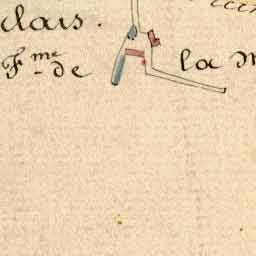 clais.
Fme de la M